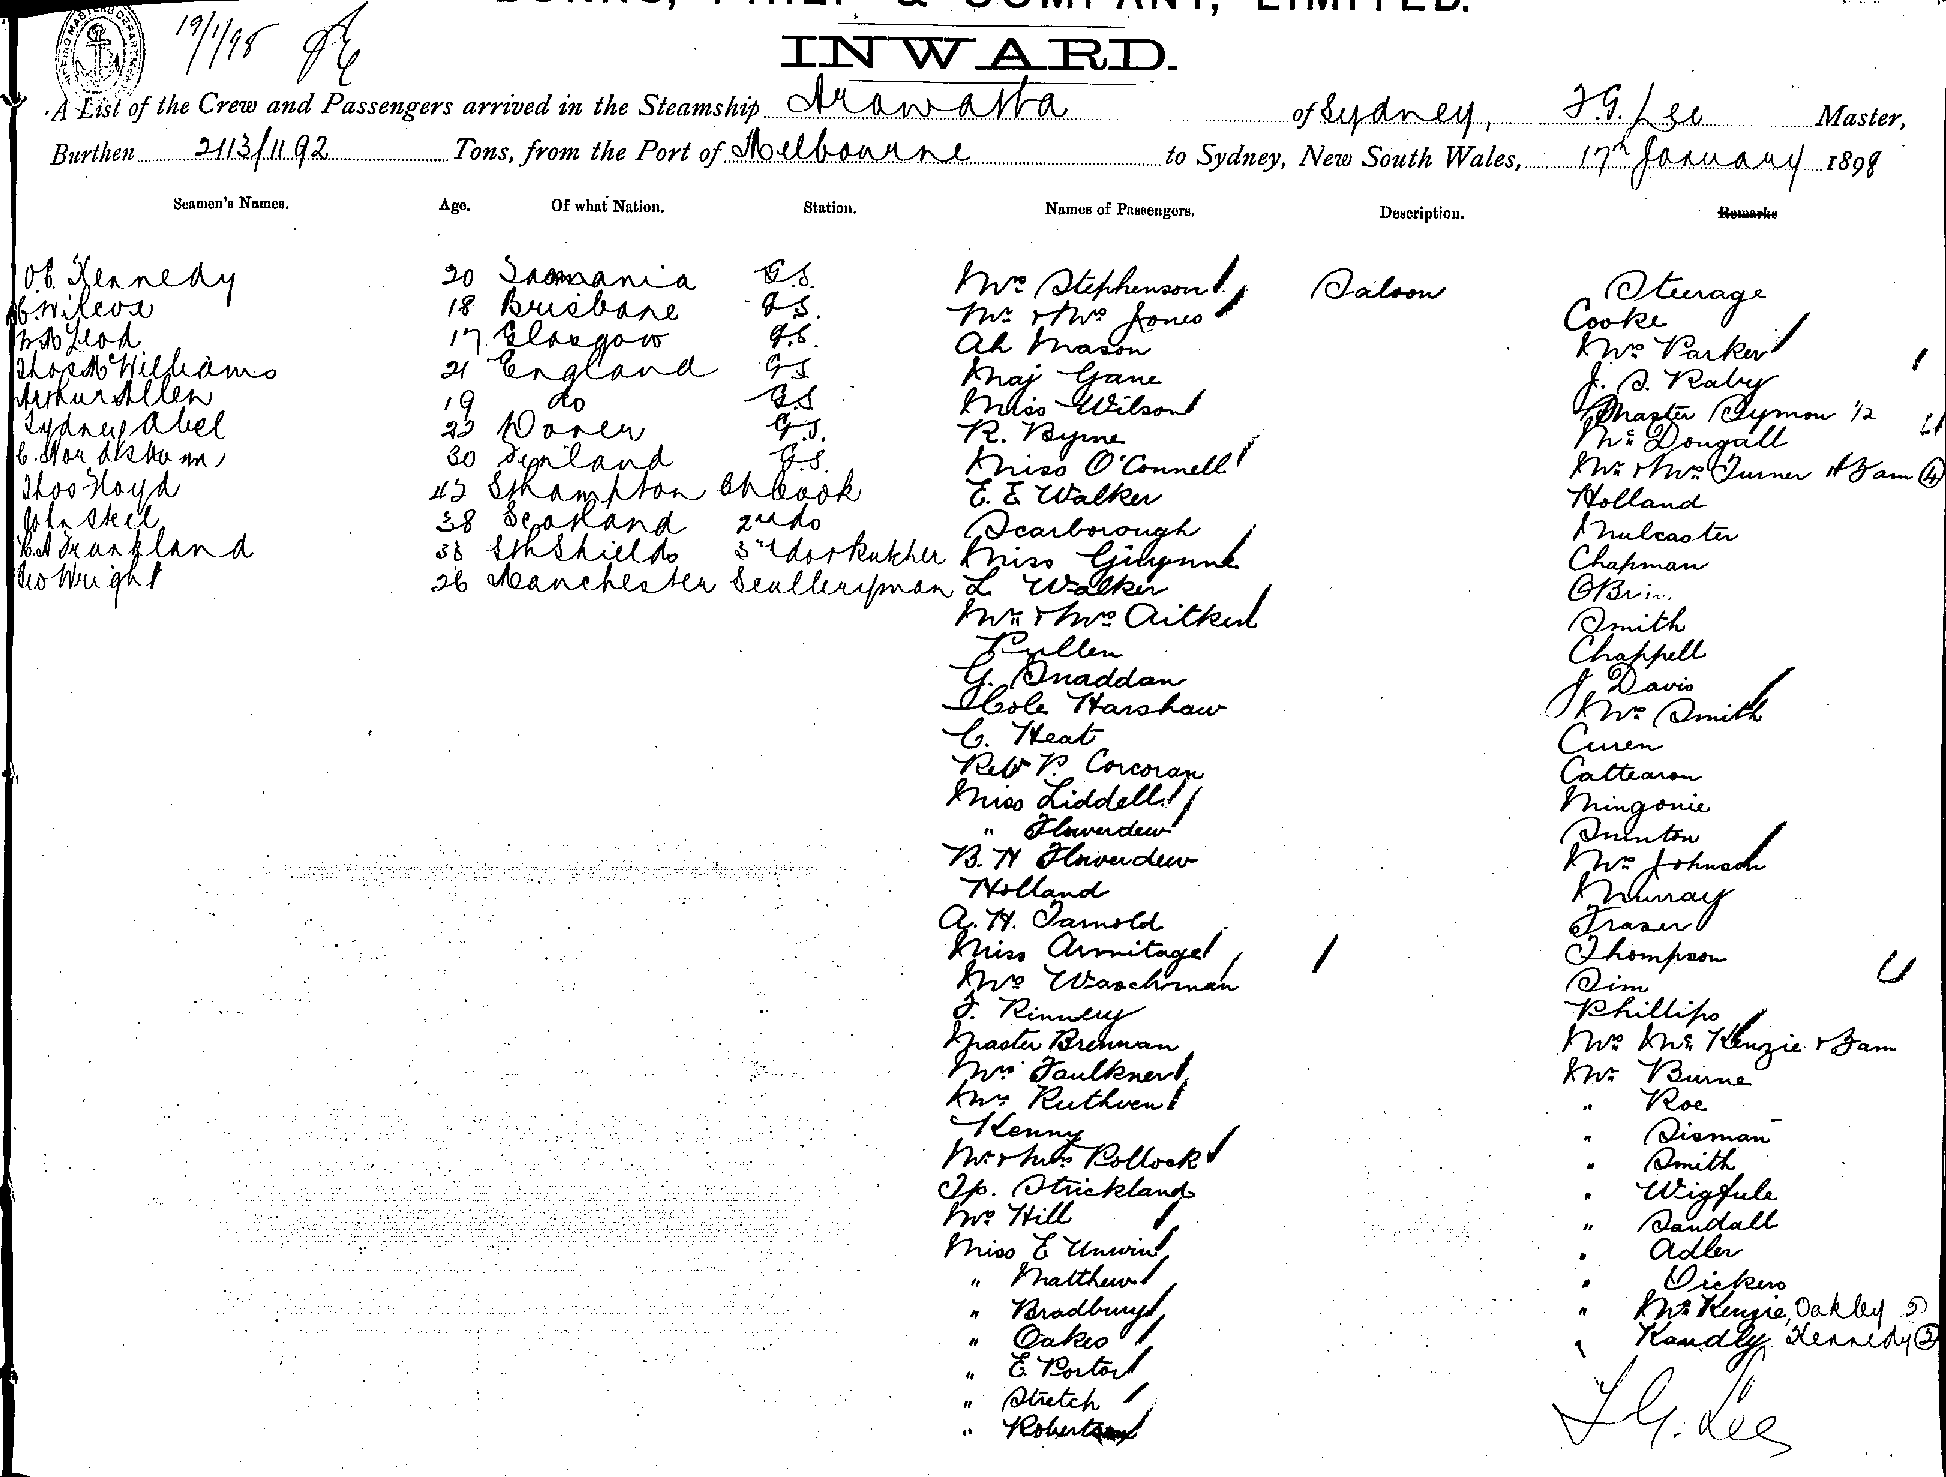 BURNS, PHILP & COMPANY, LIMITED.
19/1/98
INWARD.
A List of the Crew and Passengers arrived in the Steamship Arawatta of Sydney, F.G. Lee Master,
Burthen 2113/1192 Tons, from the Port of Melbourne to Sydney, New South Wales, 17th January 1898
Seamen's Names. Age. Of what Nation. Station. Names of Passengers. Description. Remarks
Kennedy 20 Tasmania G.S.
C. Wilcox 18 Brisbane G.S.
McLeod 17 Glasgow G.S.
Thos McWilliams 21 England G.S
Arthur Allen 19 do G.S
Sydney Abel 23 Dover G.S.
30 Finland G.S.
Thos Floyd 43 Sthampton Ch Cook
John Skel 38 Scotland 2nd do
Frankland 33 Sth Shields 3rd do & Butcher
Geo Wright 26 Manchester Sculleryman
Mrs Stephenson Saloon
Mr & Mrs Jones
Ah Mason
Maj Gane
Miss Wilson
R. Byrne
Miss O'Connell
E. E Walker
Scarborough
Miss Gwynne
L Walker
Mr & Mrs Aitken
Pullen
G. Snaddan
Cole Harshaw
C. Heat
Rev P. Corcoran
Miss Liddell
" Flowerdew
B. H Flowerdew
Holland
A. H. Tarnold
Miss Armitage
Mrs Waschman
F. Rinney
Master Brennan
Mrs Faulkner
Mrs Ruthven
Kenny
Mr & Mrs Pollock
Tp. Strickland
Mrs Hill
Miss E Unwin
" Matthew
" Bradbury
" Oakes
" E. Porter
" Stretch
" Robertson
Steerage
Cooke
Mrs Parker
J. S. Raby
Master Symon 1/2
McDougall
Mr & Mrs Turner & Fam (4)
Holland
Mulcaster
Chapman
Smith
Chappell
J Davis
Mrs Smith
Curen
Cattearon
Mingonie
Swinton
Mrs Johnson
Murray
Fraser
Thompson
Sim
Phillips
Mrs McKenzie & Fam
Mr Burne
" Roe
" Sisman
" Smith
" Wigfule
" Sandall
" Adler
" Dickens
" McKenzie, Oakley
" Kandly Kennedy (2)
F G. Lee